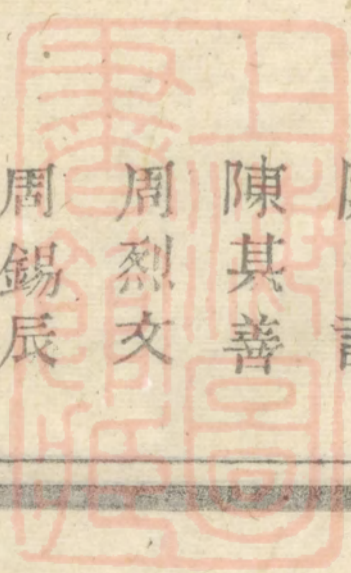 陳其善
周烈文
周錫辰
上海圖書館藏